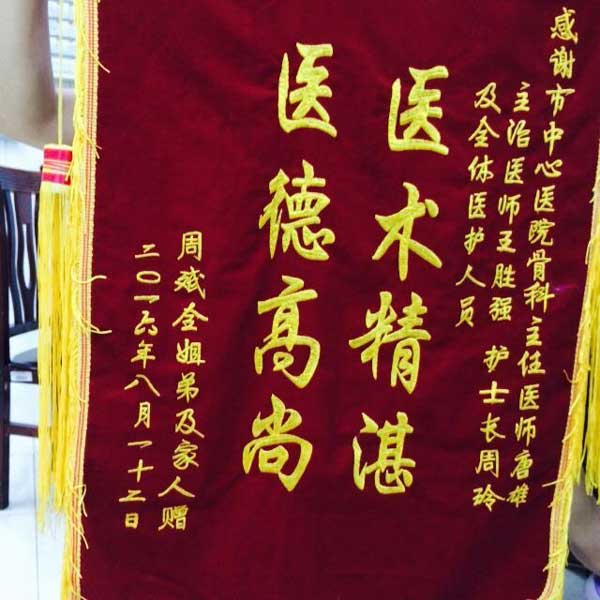 感谢市中心医院骨科主任医师唐雄
主治医师王胜强 护士长周玲
及全体医护人员
医术精湛
医德高尚
周斌全姐弟及家人赠
二〇一六年八月一十二日